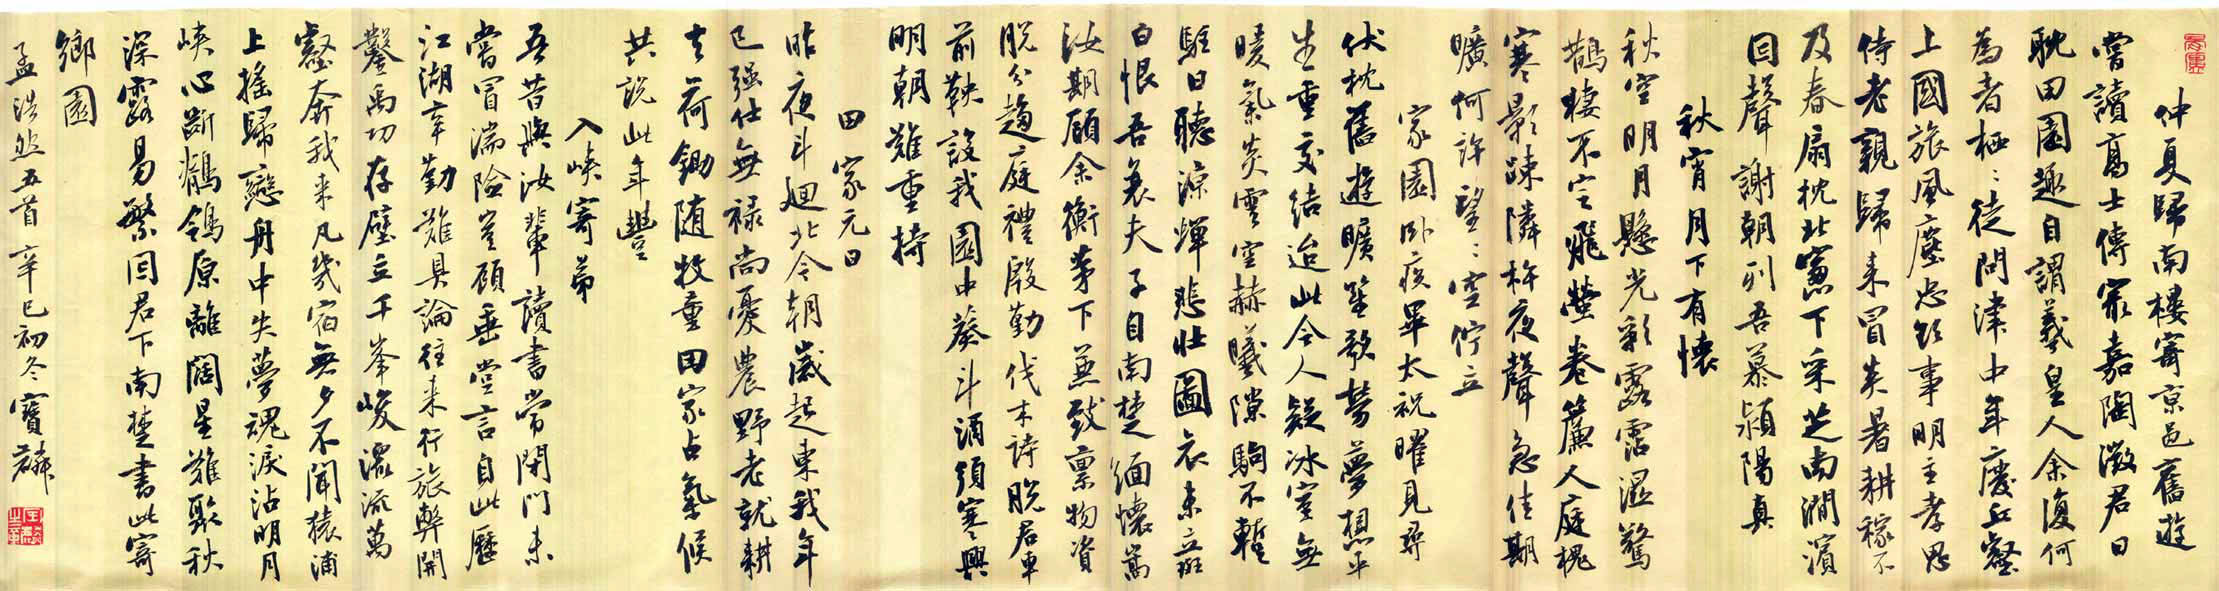 仲夏歸南樓寄京邑舊遊
嘗讀高士傳最嘉陶徵君日
耽田園趣自謂羲皇人余復何
為者栖〻徒問津中年廢丘壑
上國旅風塵忠欲事明主孝思
侍老親歸来冒炎暑耕稼不
及春扇枕北窻下采芝南澗濱
因聲謝朝列吾慕潁陽真
秋宵月下有懷
秋空明月懸光彩露霑濕驚
鵲棲不定飛螢卷簾人庭槐
寒影踈隣杵夜聲急佳期
曠何許望〻空佇立
家園卧疾畢太祝曜見尋
伏枕舊遊曠笙歌勞夢想平
生重交結迨此令人疑冰室無
暖氣炎雲空赫曦隙駒不暫
駐日聽涼蟬悲壯圖衣未立斑
白恨吾衰夫子自南楚緬懷嵩
汝期顧余衡茅下兼致稟物資
脱分趨庭禮殷勤伐木詩脱君車
前鞅設我園中葵斗酒須寒興
明朝難重持
田家元日
昨夜斗廻北今朝歲起東我年
已强仕無禄尚憂農野老就耕
去荷鋤随牧童田家占氣候
共說此年豐
入峽寄弟
吾昔與汝輩讀書常閉門未
嘗冒湍險豈顧垂堂言自此歷
江湖辛勤難具論往来行旅弊開
鑿禹功存壁立千峯峻潨流萬
壑奔我来凡幾宿無夕不聞猿浦
上搖歸戀舟中失夢魂淚沾明月
峽心斷鶺鴒原離闊星難聚秋
深露易繁因君下南楚書此寄
鄉園
孟浩然五首辛巳初冬寶麟